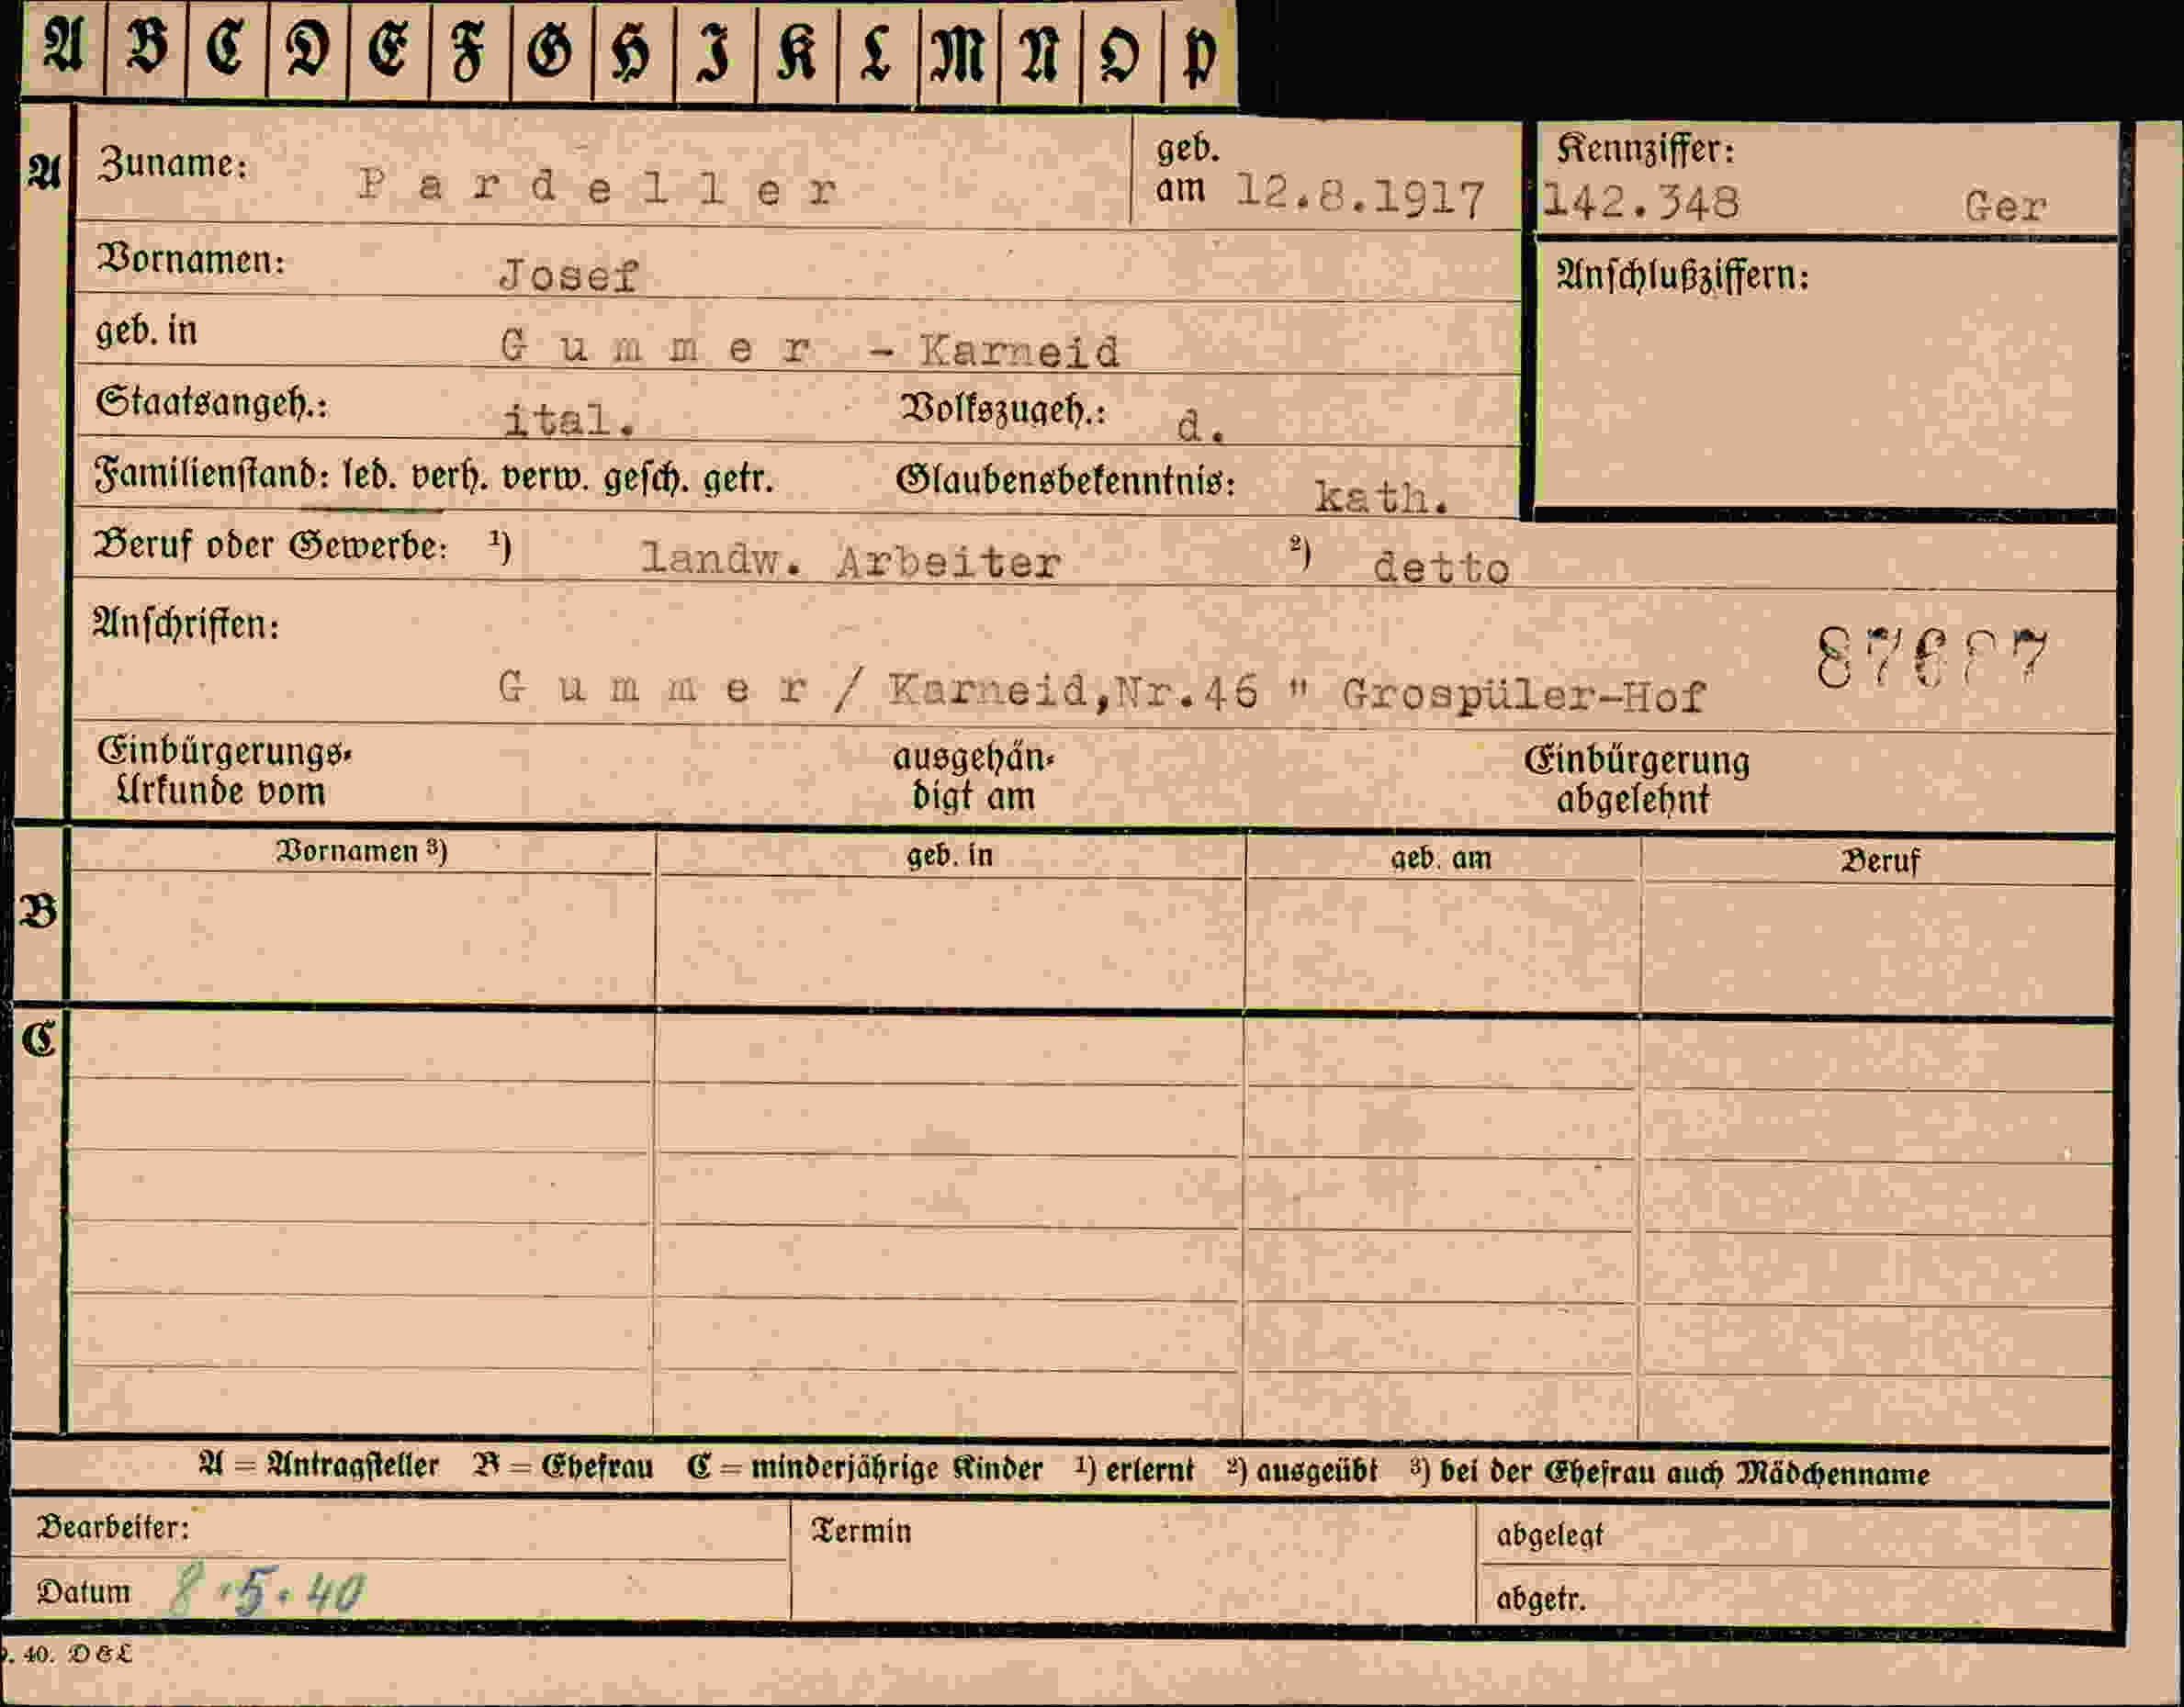 A B C D E F G H I K L M N O P
A Zuname: Pardeller geb. am 12.8.1917 Kennziffer: 142.348 Ger
Vornamen: Josef Anschlußziffern:
geb. in Gummer - Karneid
Staatsangeh.: ital. Volkszugeh.: d.
Familienstand: led. verh. verw. gesch. getr. Glaubensbekenntnis: kath.
Beruf oder Gewerbe: 1) landw. Arbeiter 2) detto
Anschriften:
Gummer / Karneid,Nr.46 " Grospüler-Hof
Einbürgerungs- ausgehän- Einbürgerung
Urkunde vom digt am abgelehnt
Vornamen 3) geb. in geb. am Beruf
B
C
A = Antragsteller B = Ehefrau C = minderjährige Kinder 1) erlernt 2) ausgeübt 3) bei der Ehefrau auch Mädchenname
Bearbeiter: Termin abgelegt
Datum 8.5.40 abgetr.
40. D&L